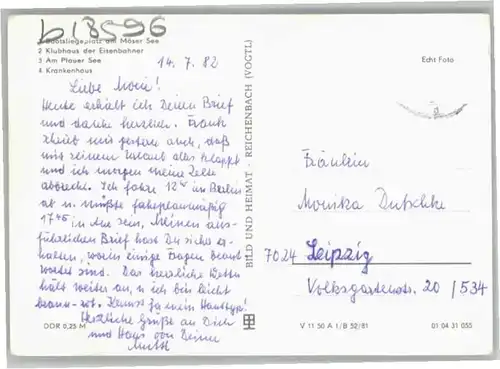 b18596
1 Bootsliegeplatz am Möser See
2 Klubhaus der Eisenbahner
3 Am Plauer See
4 Krankenhaus
14. 7. 82
Liebe Moni!
Heute erhielt ich Deinen Brief
und danke herzlich. Frank
schrieb mir gestern auch, daß
mit seinem Urlaub alles klappt
und ich morgen meine Zelte
abbreche. Ich fahre 12 in Berlin
ab u. müßte fahrplanmäßig
17 in sein. Meinen aus-
führlichen Brief hast Du sicher er-
halten, worin einige Fragen beant-
wortet sind. Das herrliche Wetter
hält weiter an, u. ich bin leicht
braun-rot. Kennst ja mein Hauttyp!
Herzliche Grüße an Dich
und Hans von Deiner
Mutti
DDR 0,25 M
BILD UND HEIMAT · REICHENBACH (VOGTL)
Echt Foto
Fräulein
Monika Dutschke
7024 Leipzig
Volksgartenstr. 20 /534
V 11 50 A 1/B 52/81
01 04 31 055